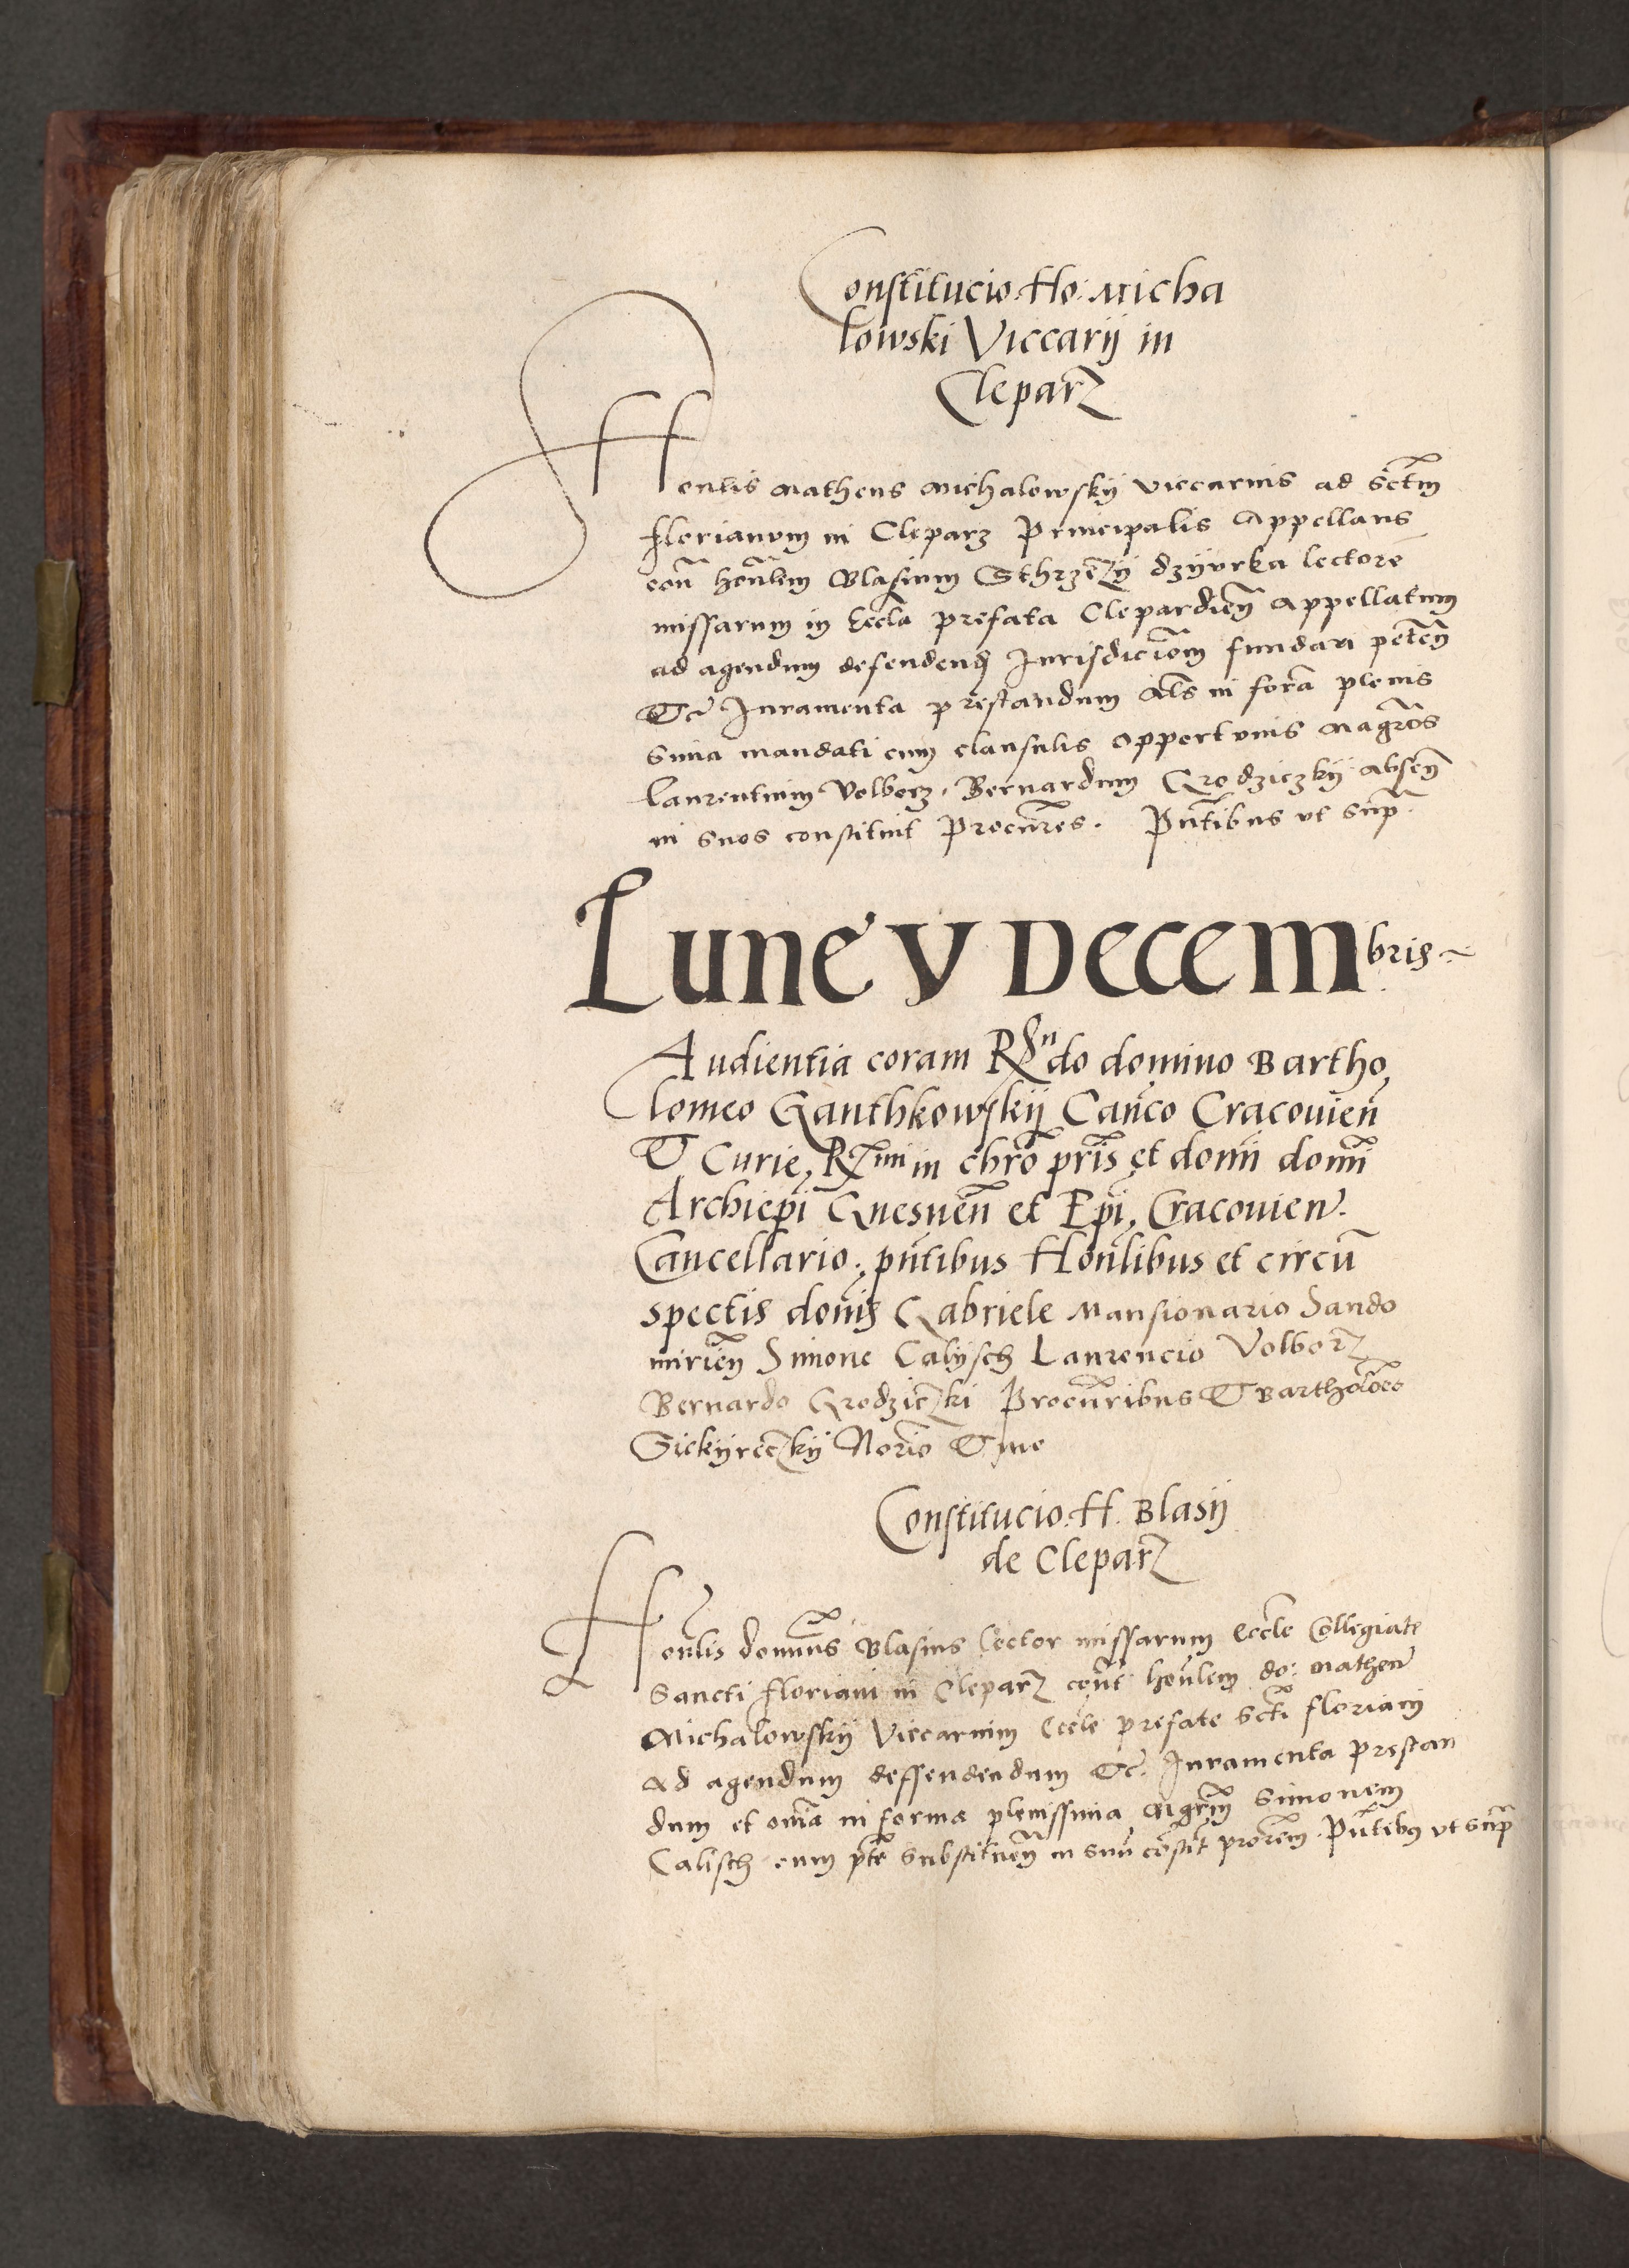 Constitucio Ho: Micha
lowski Viccarij in
Cleparz
Honlis Matheus Michalowskij Viccarius ad Sctm
Florianum in Cleparz Principalis Appellans
con honlem Blasium Sthrzenzij dzijurka lectore
missarum in Eccla prefata Clepardien Appellatum
ad agendum defendend Jurisdiciom fundari peten
Et Juramenta prestandum Als in fora plenis
sima mandati cum clausulis opportunis Magros
Laurentium Volborz. Bernardum Grodziczkij absen
in suos constituit Procures. Pntibus vt supr.
Lune V Decembris
Audientia coram Rndo domino Bartho
lomeo Ganthkowskij Canco Cracouien
Et Curie, Rmi in chro pris et domi domi
Archiepi Gnesnen et Epi, Cracouien.
Cancellario, pntibus Honlibus et circu
spectis donis Gabriele Mansionario Sando
mirien Simone Calijsch Laurencio Volborz
Bernardo Grodziczki Procuribus Et Bartholoeo
Norio Et me
Constitucio. H. Blasij
de Cleparz
Honlis domnus Blasius lector missarum Eccle Collegiate
Sancti Floriani in Cleparz cont honlem do: Matheu
Michalowskij Viccarium Eccle prefate Scti Floriani
Ad agendum deffendendum Etc. Juramenta prestan
dum et omia in forma plenissima Mgrm Simonem
Calisch cum pte substituen in suu constit prorem. Pntibus vt supr